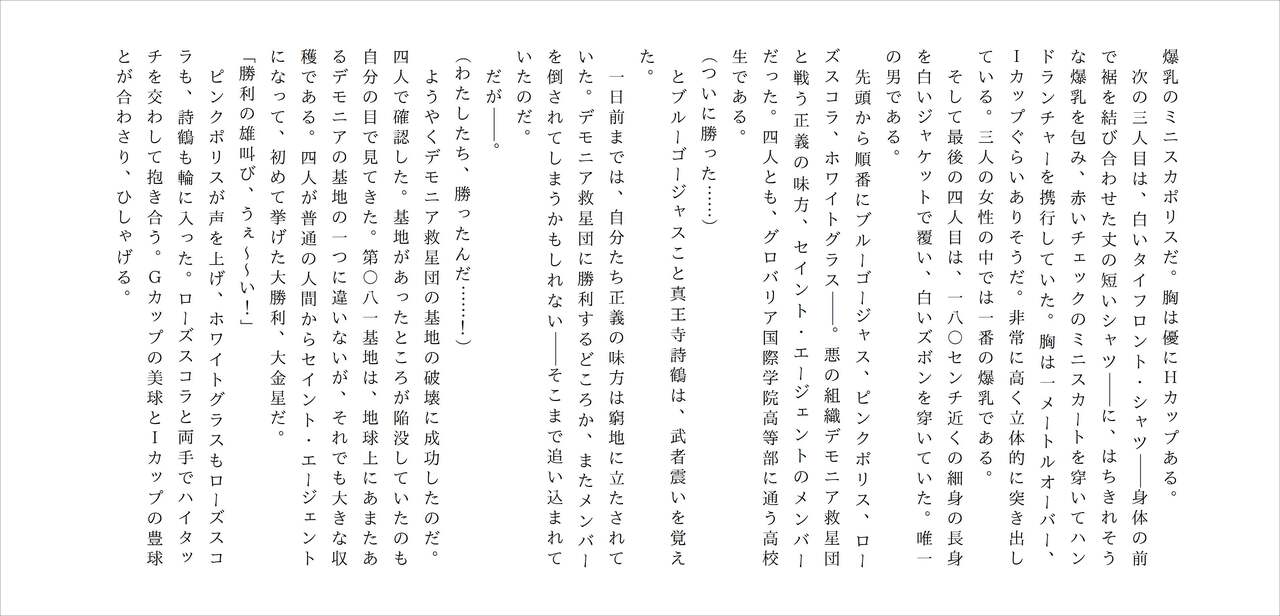 爆乳のミニスカポリスだ。胸は優にHカップある。
　次の三人目は、白いタイフロント・シャツ――身体の前
で裾を結び合わせた丈の短いシャツ――に、はちきれそう
な爆乳を包み、赤いチェックのミニスカートを穿いてハン
ドランチャーを携行していた。胸は一メートルオーバー、
Iカップぐらいありそうだ。非常に高く立体的に突き出し
ている。三人の女性の中では一番の爆乳である。
　そして最後の四人目は、一八〇センチ近くの細身の長身
を白いジャケットで覆い、白いズボンを穿いていた。唯一
の男である。
　先頭から順番にブルーゴージャス、ピンクポリス、ロー
ズスコラ、ホワイトグラス――。悪の組織デモニア救星団
と戦う正義の味方、セイント・エージェントのメンバー
だった。四人とも、グロバリア国際学院高等部に通う高校
生である。
（ついに勝った……）
　とブルーゴージャスこと真王寺詩鶴は、武者震いを覚え
た。
　一日前までは、自分たち正義の味方は窮地に立たされて
いた。デモニア救星団に勝利するどころか、またメンバー
を倒されてしまうかもしれない――そこまで追い込まれて
いたのだ。
　だが――。
（わたしたち、勝ったんだ……！）
　ようやくデモニア救星団の基地の破壊に成功したのだ。
四人で確認した。基地があったところが陥没していたのも
自分の目で見てきた。第〇八一基地は、地球上にあまたあ
るデモニアの基地の一つに違いないが、それでも大きな収
穫である。四人が普通の人間からセイント・エージェント
になって、初めて挙げた大勝利、大金星だ。
「勝利の雄叫び、うぇ～～い！」
　ピンクポリスが声を上げ、ホワイトグラスもローズスコ
ラも、詩鶴も輪に入った。ローズスコラと両手でハイタッ
チを交わして抱き合う。Gカップの美球とIカップの豊球
とが合わさり、ひしゃげる。